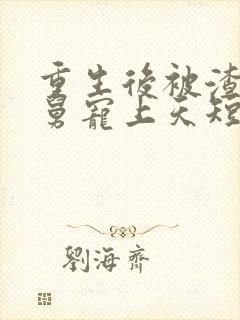 重生後被渣
舅寵上天短
劉海齊